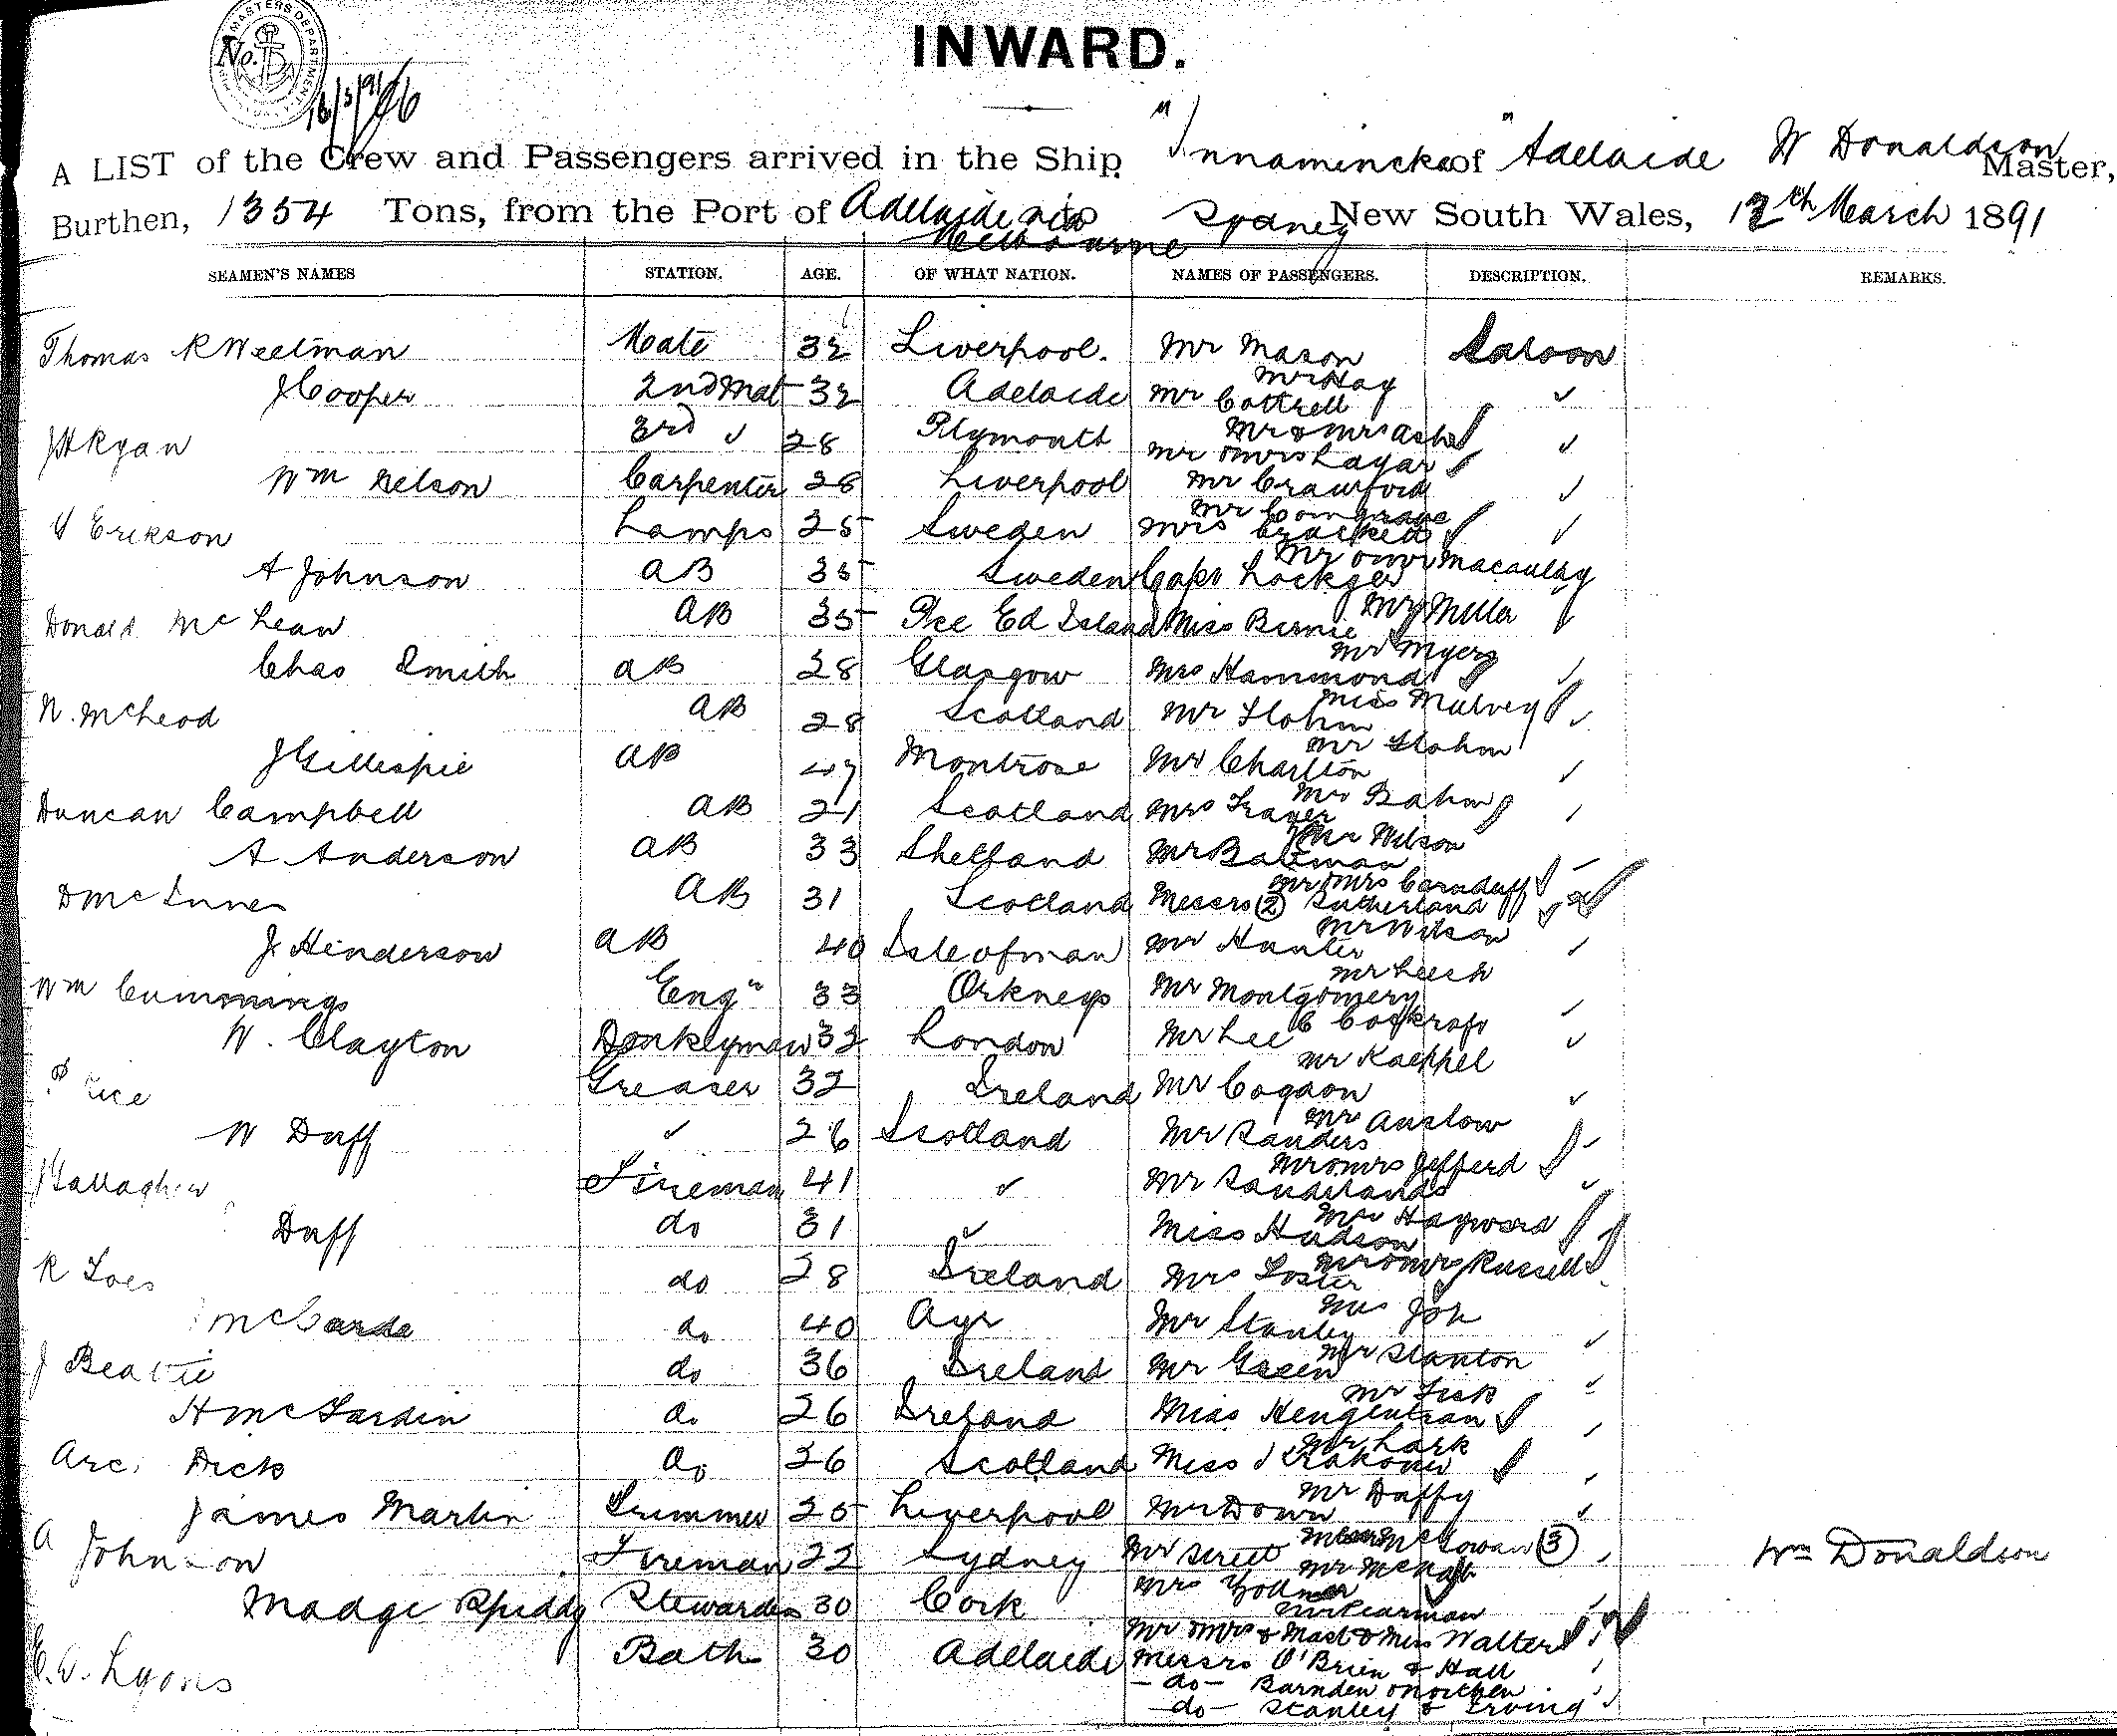 INWARD.
No.
16/3/91
A LIST of the Crew and Passengers arrived in the Ship "Innamincka" of Adelaide W Donaldson Master,
Burthen, 1354 Tons, from the Port of Adelaide via Melbourne to Sydney New South Wales, 12th March 1891
SEAMEN'S NAMES STATION. AGE. OF WHAT NATION. NAMES OF PASSENGERS. DESCRIPTION. REMARKS.
Thomas R Weelman Mate 32 Liverpool. Mr Mason Saloon
J Cooper 2nd Mat 32 Adelaide Mr Hay Mr Cottrell
JH Ryan 3rd 28 Plymouth Mr & Mrs Ashe Mr & Mrs Lagar
Wm Nelson Carpenter 28 Liverpool Mr Crawford
Erikson Lamps 25 Sweden Mr Congrave Mrs Cracked
A Johnson AB 35 Sweden Mr & Mrs Macaulay Capt
Donald McLean AB 35 Pce Ed Island Miss Birnie Miller
Chas Smith AB 28 Glasgow Mr Myers Mrs Hammond
N. McLeod AB 28 Scotland Miss Mulvey Mr Flohm
J Gillespie AB 47 Montrose Mr Flohm Mr Charlton
Duncan Campbell AB 21 Scotland Mrs Bahm Mrs Fraser
A Anderson AB 33 Shetland Mr Wilson Mr Bateman
D McInnes AB 31 Scotland Mr & Mrs Carnduff Messrs (2) Sutherland
J Henderson AB 40 Isle of man Mr Wilson Mr Hunter
Wm Cummings Eng" 33 Orkneys Mr Leech Mr Montgomery
W. Clayton Donkeyman 32 London C Cockroft Mr Lee
Rice Greaser 32 Ireland Mr Kaeppel Mr Cogaon
W Duff 26 Scotland Mr Anslow Mr Sanders
J Gallagher Fireman 41 Mr & Mrs Jefferd Mr Sanderlands
Duff do 31 Mrs Hayward Miss Hudson
R Foes do 28 Ireland Mr & Mrs Russell Mrs Foster
McCarde do 40 Ayr Joh Mr Stanley
J Beattie do 36 Ireland Mr Stanton Mr Green
H McFardin do 26 Ireland Mr Fisk Miss
Arc. Dick do 26 Scotland Mr Lark Miss
James Martin Trimmer 25 Liverpool Mr Duffy Mr Down
A Johnson Fireman 22 Sydney McGowan (3) Mr Street Wm Donaldson
Madge Stewardess 30 Cork Mrs Mr Pearman
E. Lyons Bath 30 Adelaide Mr & Mrs & Mast & Miss Walter
Messrs O'Brien & Hall
- do - Barnden &
- do - Stanley & Irving